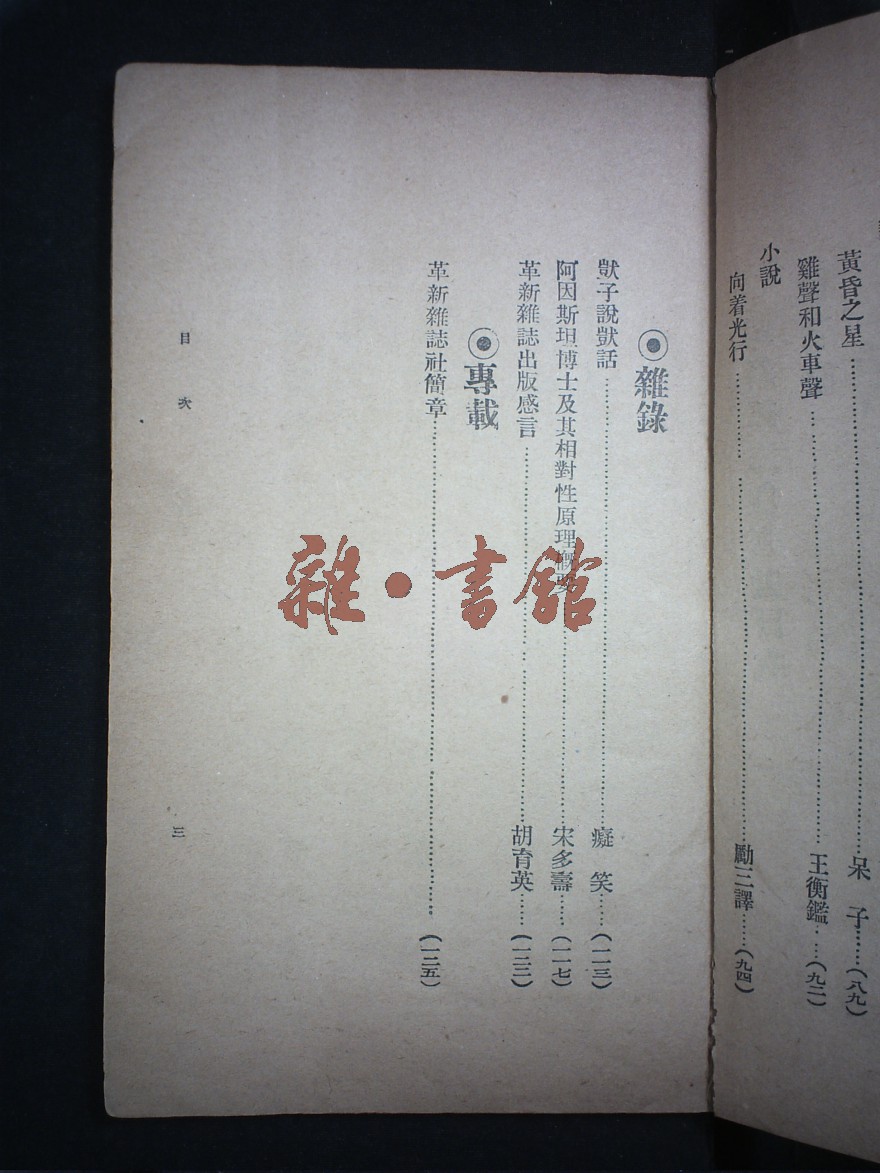 黃昏之星……呆子……(八九)
雞聲和火車聲……王衡鑑……(九二)
小說
向着光行……勵三譯……(九四)
◉雜錄
獃子說獃話……癡笑……(一一三)
阿因斯坦博士及其相對性原理概要……宋多壽……(一一七)
革新雜誌出版感言……胡育英……(一二二)
◉專載
革新雜誌社簡章……(一二五)
目次
三
雜·書館